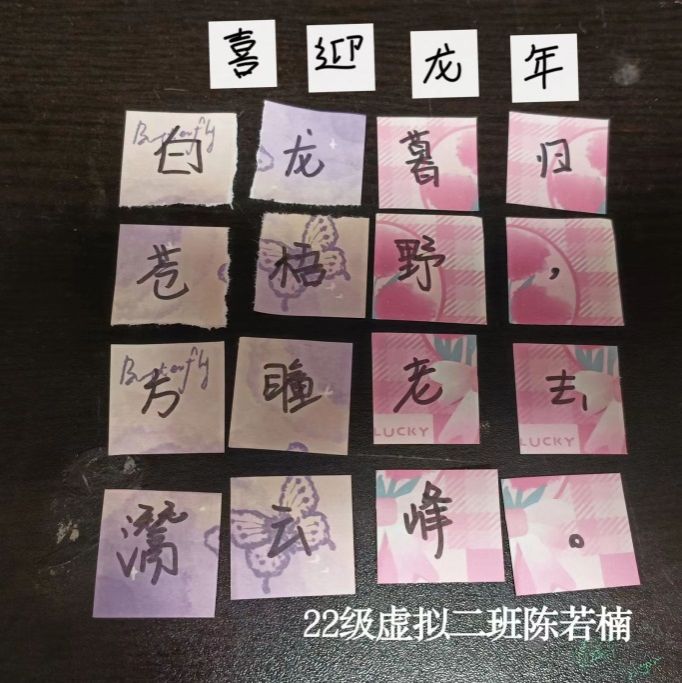 喜迎龙年
Butterfly
白龙暮归
苍梧野，
Butterfly
方瞳老去
LUCKY LUCKY
云峰。
22级虚拟二班陈若楠